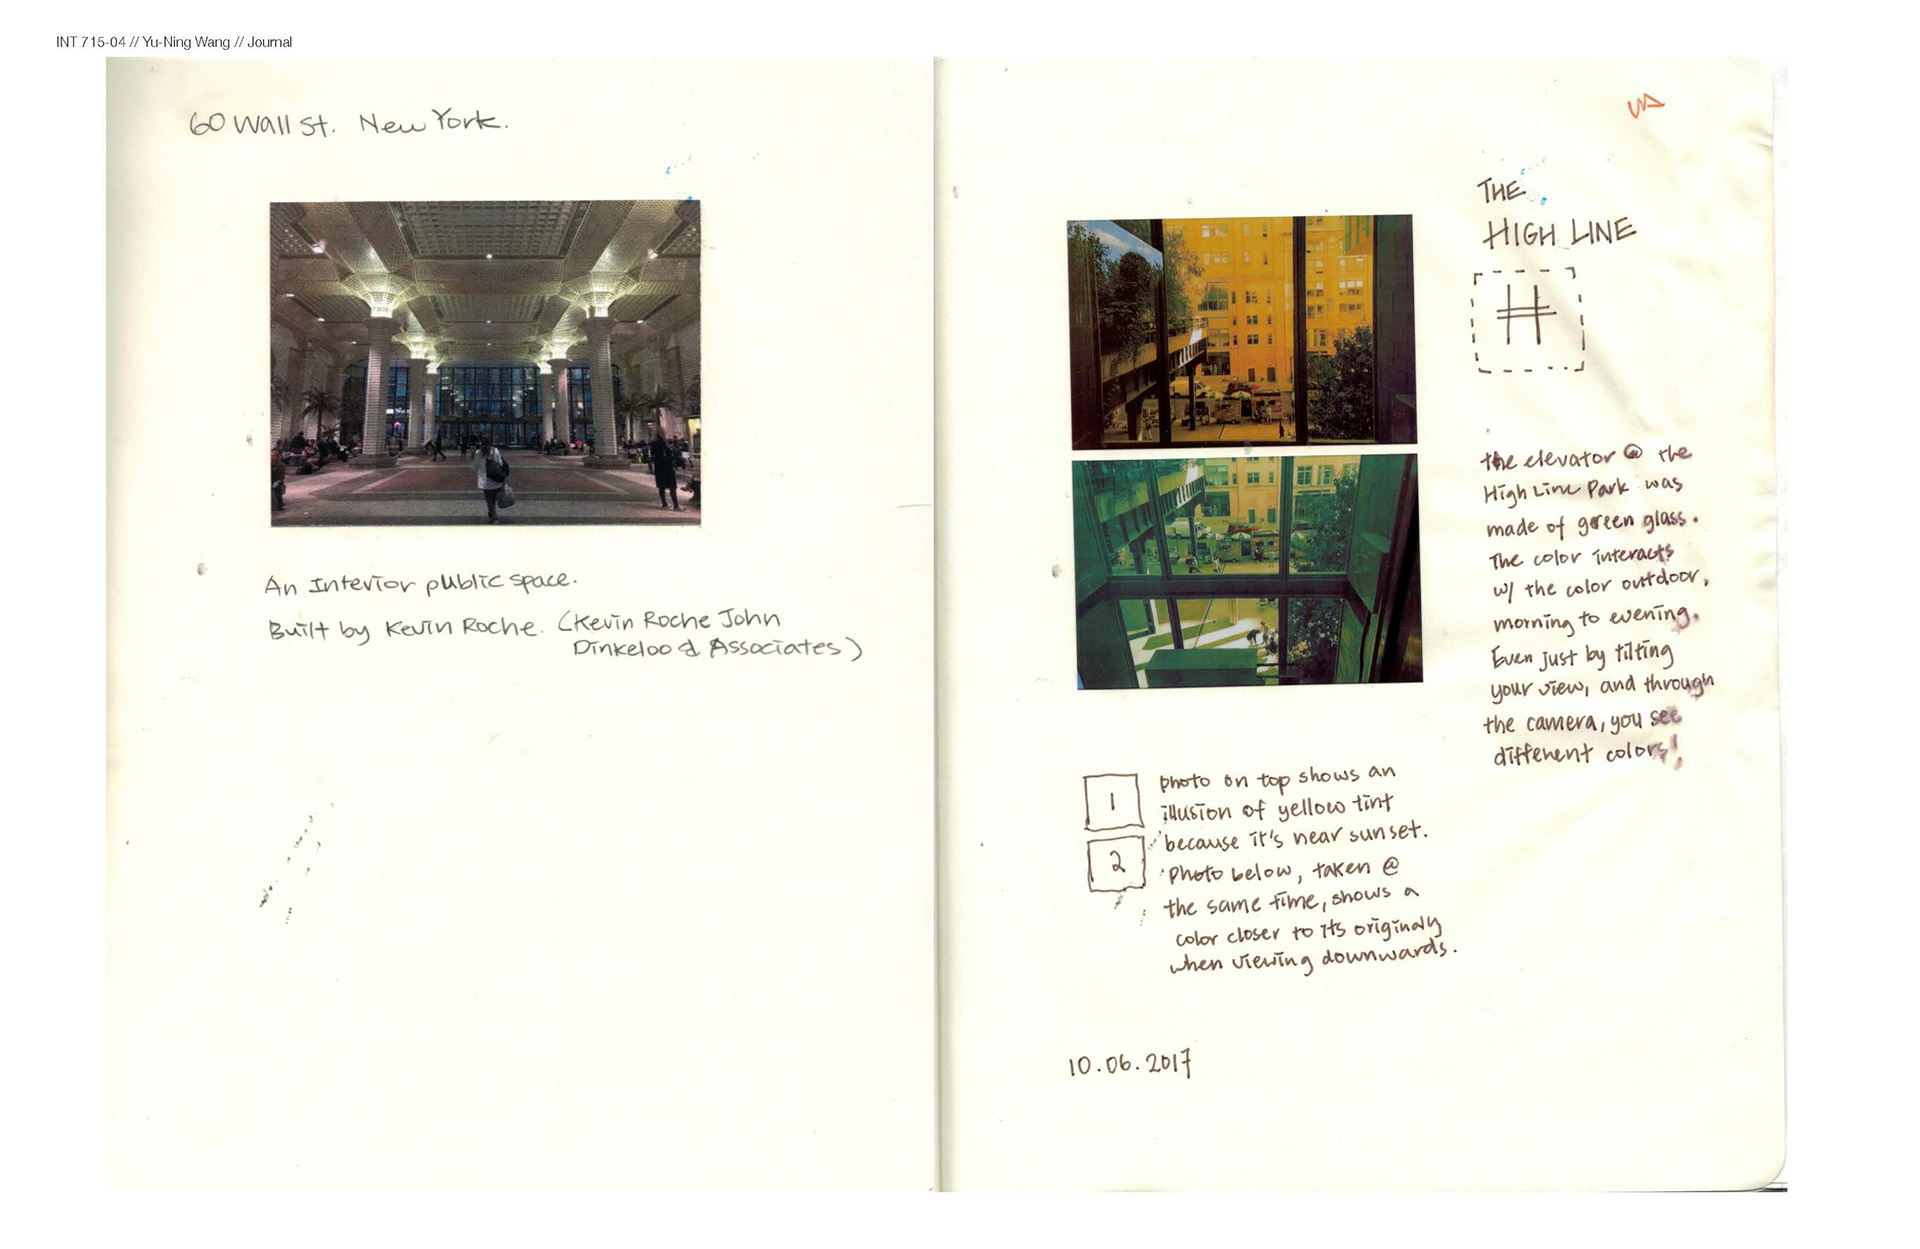 INT 715-04 // Yu-Ning Wang // Journal
60 Wall St. New York.
An Interior public space.
Built by Kevin Roche. (Kevin Roche John
Dinkeloo & Associates)
THE
HIGH LINE
the elevator @ the
High Line Park was
made of green glass.
The color interacts
w/ the color outdoor,
morning to evening.
Even just by tilting
your view, and through
the camera, you see
different colors!
1
2
photo on top shows an
illusion of yellow tint
because it's near sunset.
Photo below, taken @
the same time, shows a
color closer to its originaly
when viewing downwards.
10.06.2017